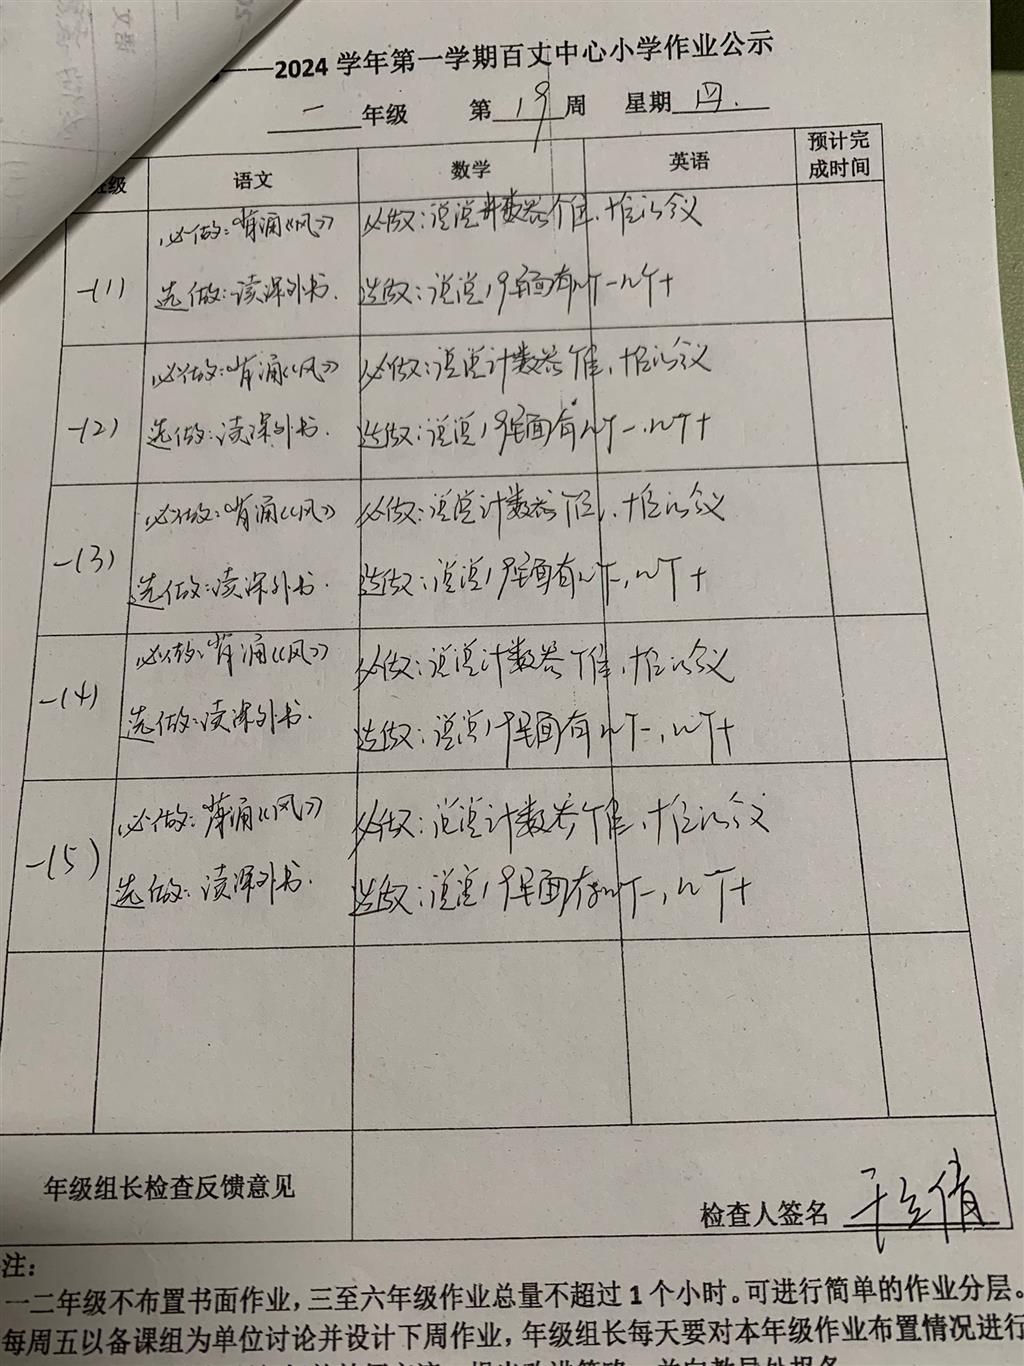 ——2024 学年第一学期百丈中心小学作业公示
二 年级 第 19 周 星期 四.
班级 语文 数学 英语 预计完成时间
必做:背诵《风》 必做:说说计数器个位、十位的含义
一(1)
选做:读课外书. 选做:说说19里面有几个一几个十
必做:背诵《风》 必做:说说计数器个位,十位的含义
一(2)
选做:读课外书. 选做:说说19里面有几个一,几个十
必做:背诵《风》 必做:说说计数器个位,十位的含义
一(3)
选做:读课外书. 选做:说说19里面有几个一,几个十
必做:背诵《风》 必做:说说计数器个位,十位的含义
一(4)
选做:读课外书. 选做:说说19里面有几个一,几个十
必做:背诵《风》 必做:说说计数器个位,十位的含义
一(5)
选做:读课外书. 选做:说说19里面有几个一,几个十
年级组长检查反馈意见
检查人签名
注:
一二年级不布置书面作业,三至六年级作业总量不超过 1 个小时。可进行简单的作业分层。
每周五以备课组为单位讨论并设计下周作业,年级组长每天要对本年级作业布置情况进行